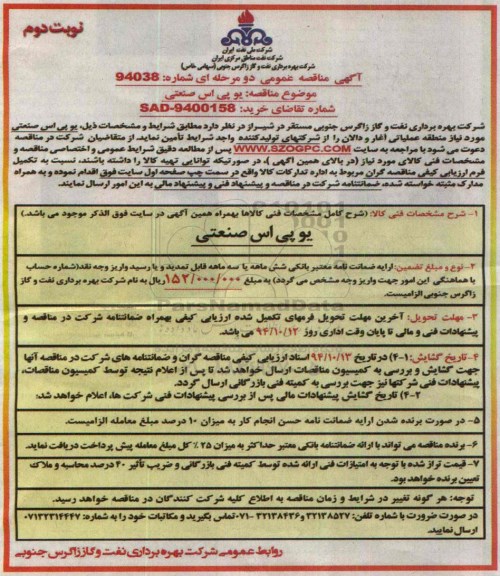 نوبت دوم
شرکت ملی نفت ایران
شرکت نفت مناطق مرکزی ایران
شرکت بهره برداری نفت و گاز زاگرس جنوبی (سهامی خاص)
آگهی مناقصه عمومی دو مرحله ای شماره: 94038
موضوع مناقصه: یو پی اس صنعتی
شماره تقاضای خرید: SAD-9400158
شرکت بهره برداری نفت و گاز زاگرس جنوبی مستقر در شیراز در نظر دارد مطابق شرایط و مشخصات ذیل، یو پی اس صنعتی
مورد نیاز منطقه عملیاتی آغار و دالان را از شرکتهای تولیدکننده واجد شرایط تأمین نماید، از متقاضیان شرکت در مناقصه
دعوت می شود با مراجعه به سایت WWW.SZOGPC.COM پس از مطالعه دقیق شرایط عمومی و اختصاصی مناقصه و
مشخصات فنی کالای مورد نیاز (در بالای همین آگهی)، در صورتیکه توانایی تهیه کالا را داشته باشند، نسبت به تکمیل
فرم ارزیابی کیفی مناقصه گران مربوط به اداره تدارکات کالا واقع در سمت چپ صفحه اول سایت فوق اقدام نموده و به همراه
مدارک مثبته خواسته شده، ضمانتنامه شرکت در مناقصه و پیشنهاد فنی و پیشنهاد مالی به این امور ارسال نمایند.
۱- شرح مشخصات فنی کالا: (شرح کامل مشخصات فنی کالاها بهمراه همین آگهی در سایت فوق الذکر موجود می باشد.)
یو پی اس صنعتی
۲- نوع و مبلغ تضمین: ارایه ضمانت نامه معتبر بانکی شش ماهه یا سه ماهه قابل تمدید و یا رسید واریز وجه نقد(شماره حساب
با هماهنگی این امور جهت واریز وجه مشخص می گردد) به مبلغ ۱۵۲/۰۰۰/۰۰۰ ریال به نام شرکت بهره برداری نفت و گاز
زاگرس جنوبی الزامیست.
۳- مهلت تحویل: آخرین مهلت تحویل فرمهای تکمیل شده ارزیابی کیفی بهمراه ضمانتنامه شرکت در مناقصه و
پیشنهادات فنی و مالی تا پایان وقت اداری روز ۹۴/۱۰/۱۲ می باشد.
۴- تاریخ گشایش: ۱-۴) در تاریخ ۹۴/۱۰/۱۳ اسناد ارزیابی کیفی مناقصه گران و ضمانتنامه های شرکت در مناقصه آنها
جهت گشایش و بررسی به کمیسیون مناقصات ارسال خواهد شد تا پس از اعلام نتیجه توسط کمیسیون مناقصات،
پیشنهادات فنی شرکتها نیز جهت بررسی به کمیته فنی بازرگانی ارسال گردد.
۲-۴) تاریخ گشایش پیشنهادات مالی پس از بررسی پیشنهادات فنی شرکت ها، اعلام خواهد شد.
۵- در صورت برنده شدن ارایه ضمانت نامه حسن انجام کار به میزان ۱۰ درصد مبلغ معامله الزامیست.
۶- برنده مناقصه می تواند با ارائه ضمانتنامه بانکی معتبر حداکثر به میزان ۲۵٪ کل مبلغ معامله پیش پرداخت دریافت نماید.
۷- قیمت تراز شده با توجه به امتیازات فنی ارائه شده توسط کمیته فنی بازرگانی و ضریب تأثیر ۴۰ درصد محاسبه و ملاک
تعیین برنده خواهد بود.
توجه: هر گونه تغییر در شرایط و زمان مناقصه به اطلاع کلیه شرکت کنندگان در مناقصه خواهد رسید.
در صورت ضرورت با شماره تلفن: ۳۲۱۳۸۵۲۷ و ۳۲۱۳۸۴۳۶-۰۷۱ تماس بگیرید و مکاتبات خود را به شماره: ۰۷۱۳۲۳۱۴۴۴۷
ارسال نمایید.
روابط عمومی شرکت بهره برداری نفت و گاز زاگرس جنوبی